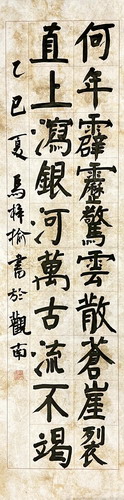 何年霹靂驚雲散蒼崖裂
直上瀉銀河萬古流不竭
乙巳夏馬梓揄書於觀南